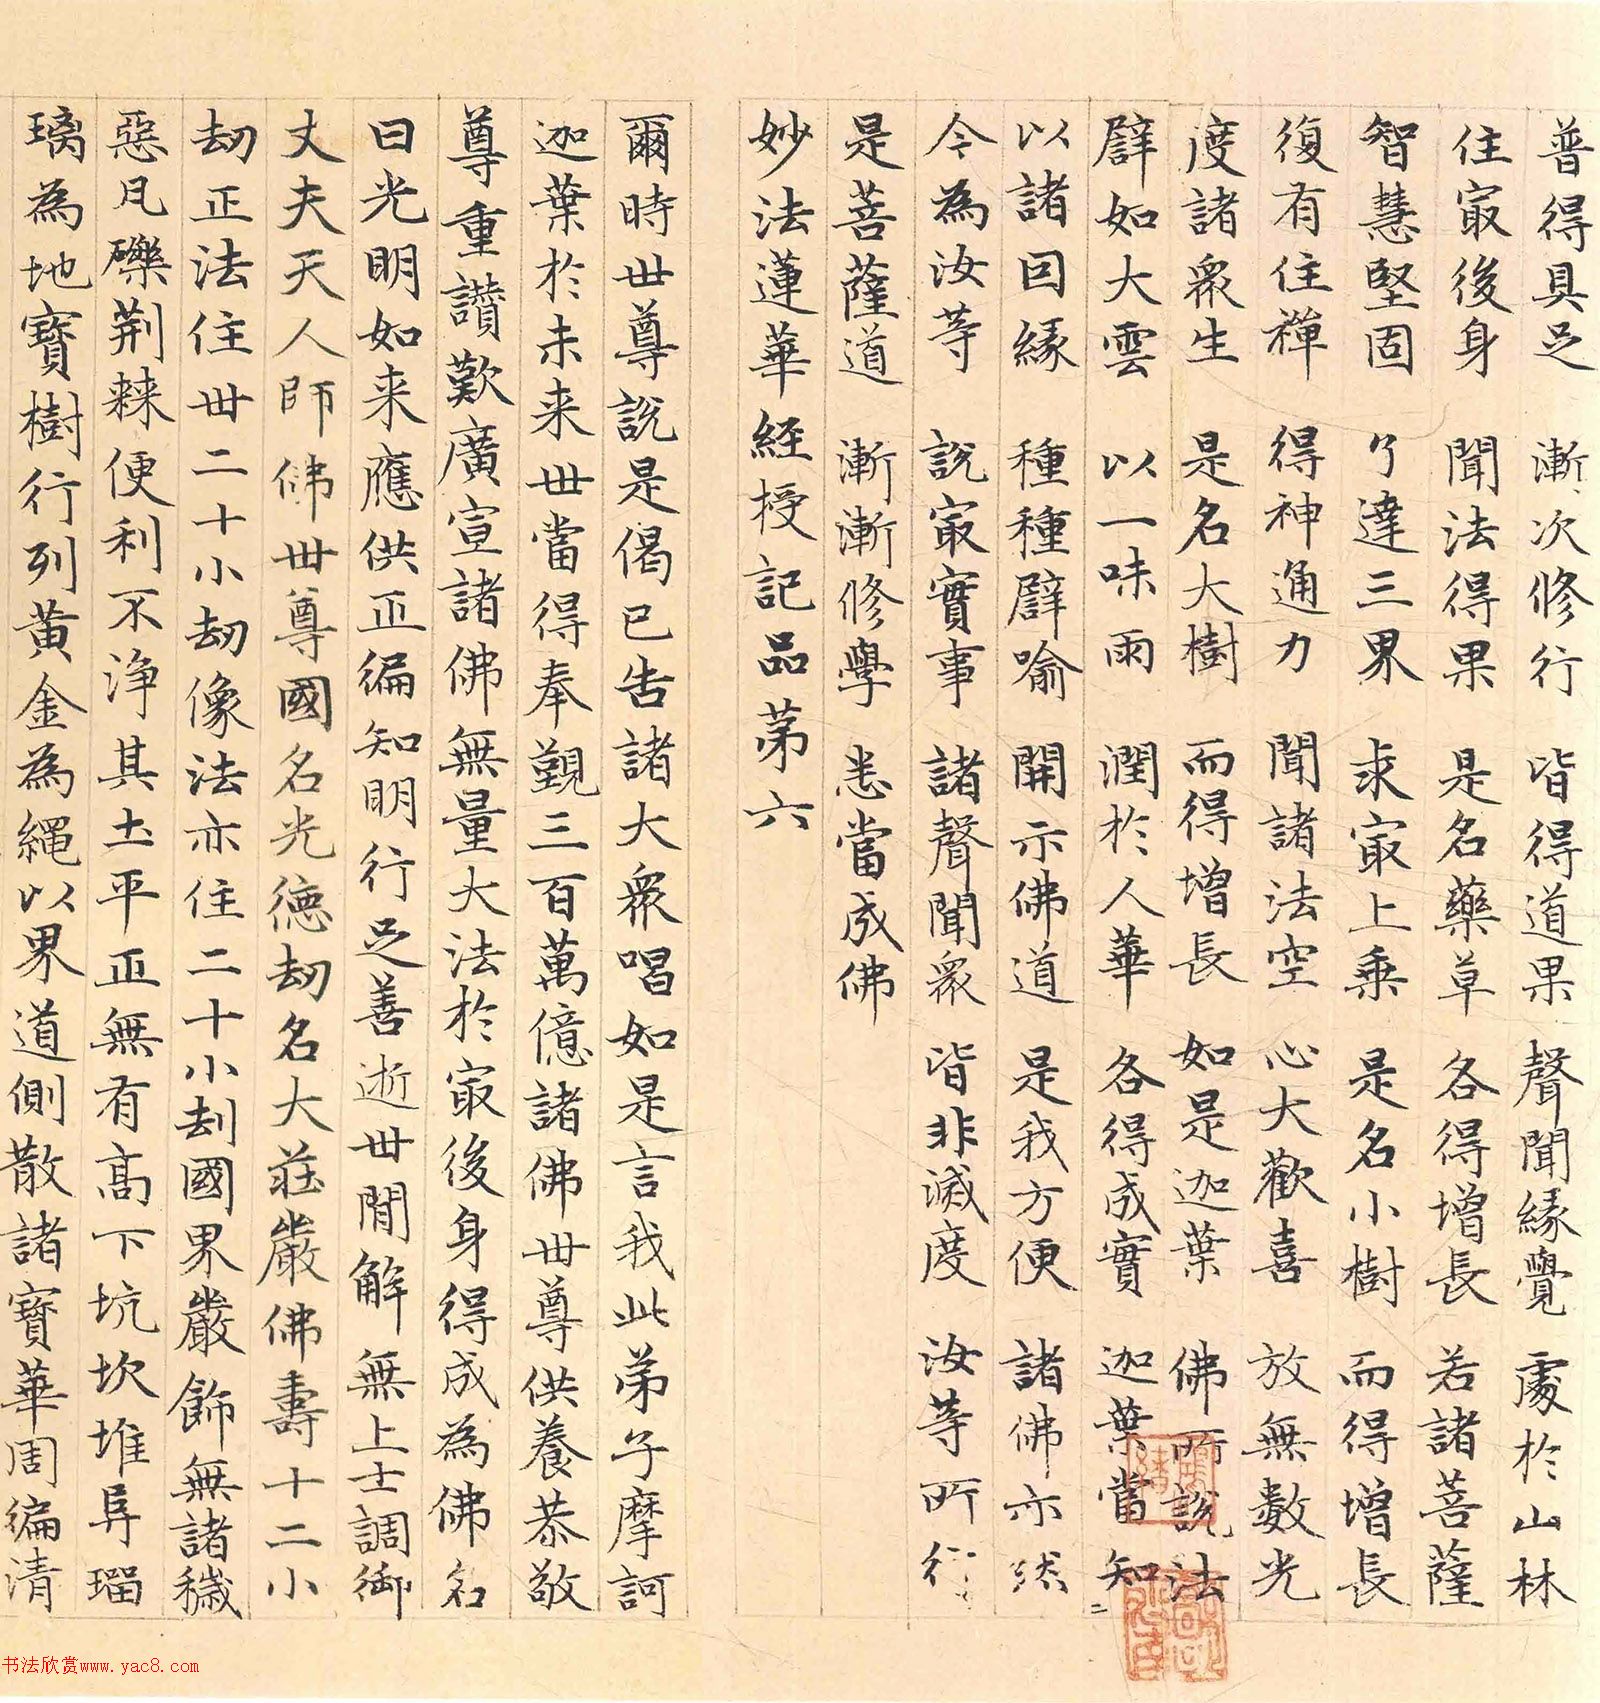 普得具足 漸次修行 皆得道果 聲聞緣覺 處於山林
住冣後身 聞法得果 是名藥草 各得增長 若諸菩薩
智慧堅固 了達三界 求冣上乘 是名小樹 而得增長
復有住禪 得神通力 聞諸法空 心大歡喜 放無數光
度諸眾生 是名大樹 而得增長 如是迦葉 佛所說法
譬如大雲 以一味雨 潤於人華 各得成實 迦葉當知
以諸因緣 種種譬喻 開示佛道 是我方便 諸佛亦然
今為汝等 說冣實事 諸聲聞眾 皆非滅度 汝等所行
是菩薩道 漸漸修學 悉當成佛
妙法蓮華經授記品第六
爾時世尊說是偈已告諸大眾唱如是言我此弟子摩訶
迦葉於未来世當得奉覲三百萬億諸佛世尊供養恭敬
尊重讚歎廣宣諸佛無量大法於冣後身得成為佛名
曰光明如来應供正徧知明行足善逝世間解無上士調御
丈夫天人師佛世尊國名光德劫名大莊嚴佛壽十二小
劫正法住世二十小劫像法亦住二十小劫國界嚴飾無諸穢
惡瓦礫荆棘便利不淨其土平正無有高下坑坎堆阜瑠
璃為地寶樹行列黄金為繩以界道側散諸寶華周徧清
书法欣赏www.yac8.com